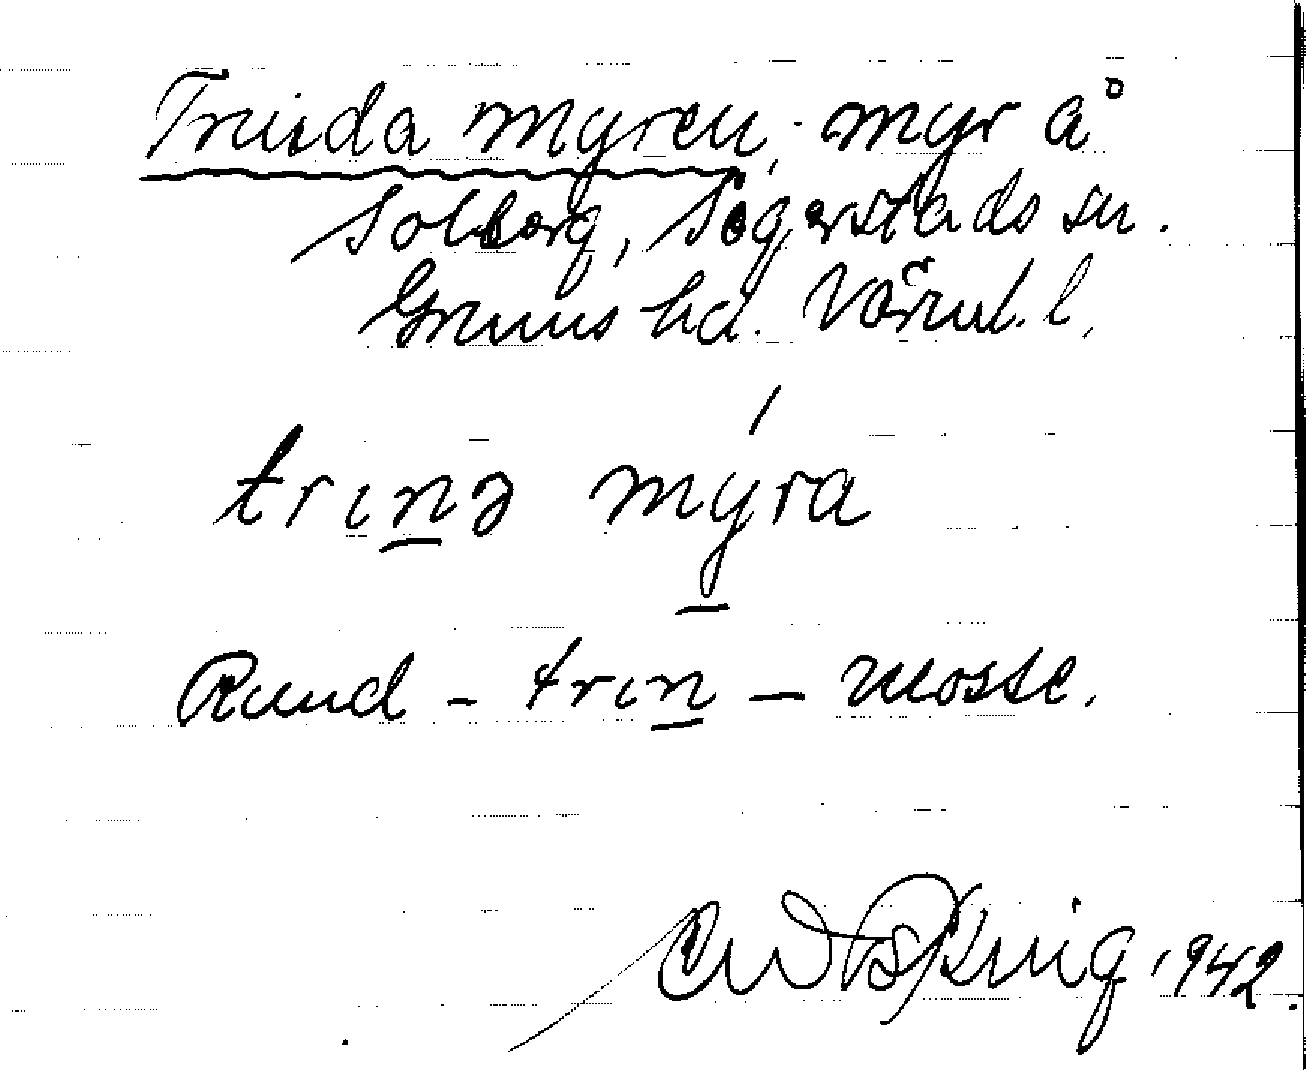 Trinda myren, myr å
Solberg, Segerstads sn.
Grums hd. Värml. l.
trınə mýra
Rund - trın - mosse.
1942.